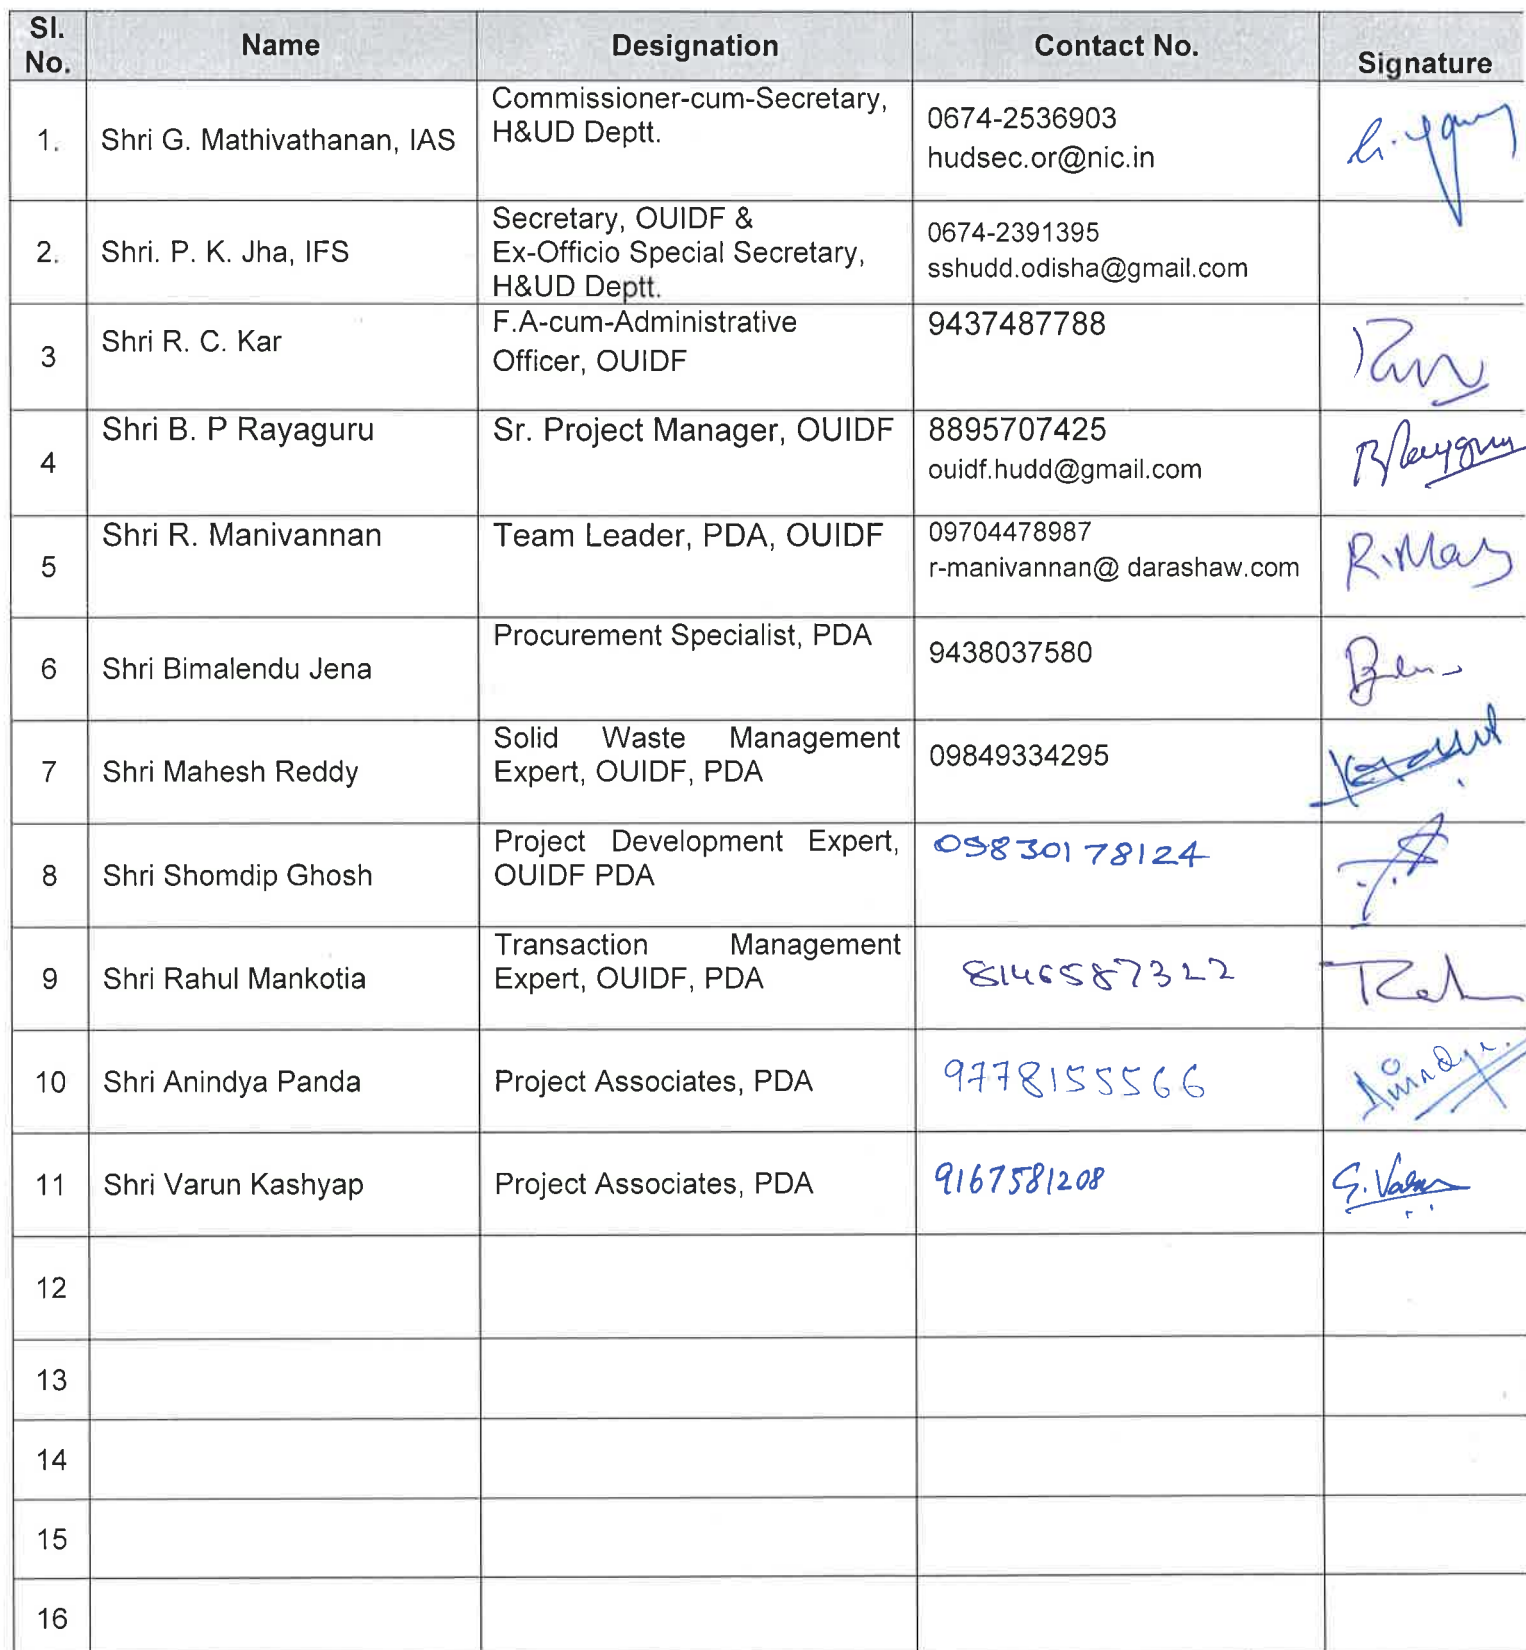 Sl. No.
Name
Designation
Contact No.
Signature
1.
Shri G. Mathivathanan, IAS
Commissioner-cum-Secretary,
H&UD Deptt.
0674-2536903
hudsec.or@nic.in
2.
Shri. P. K. Jha, IFS
Secretary, OUIDF &
Ex-Officio Special Secretary,
H&UD Deptt.
0674-2391395
sshudd.odisha@gmail.com
3
Shri R. C. Kar
F.A-cum-Administrative
Officer, OUIDF
9437487788
4
Shri B. P Rayaguru
Sr. Project Manager, OUIDF
8895707425
ouidf.hudd@gmail.com
5
Shri R. Manivannan
Team Leader, PDA, OUIDF
09704478987
r-manivannan@ darashaw.com
6
Shri Bimalendu Jena
Procurement Specialist, PDA
9438037580
7
Shri Mahesh Reddy
Solid Waste Management
Expert, OUIDF, PDA
09849334295
8
Shri Shomdip Ghosh
Project Development Expert,
OUIDF PDA
09830178124
9
Shri Rahul Mankotia
Transaction Management
Expert, OUIDF, PDA
8146587322
10
Shri Anindya Panda
Project Associates, PDA
9778155566
11
Shri Varun Kashyap
Project Associates, PDA
9167581208
12
13
14
15
16